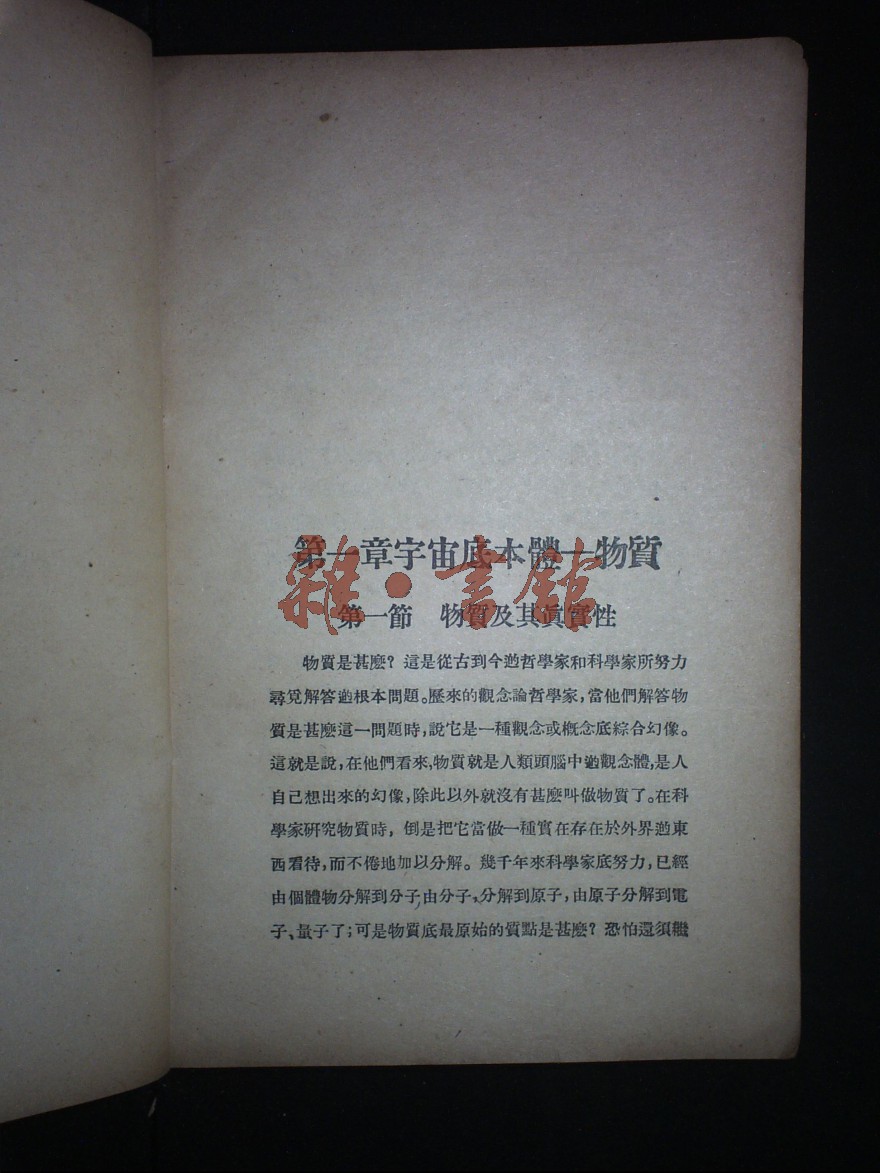 第一章宇宙底本體—物質
雜·書館
第一節 物質及其眞實性
物質是甚麽？這是從古到今逎哲學家和科學家所努力
尋覓解答逎根本問題。歷來的觀念論哲學家，當他們解答物
質是甚麽這一問題時，說它是一種觀念或概念底綜合幻像。
這就是說，在他們看來，物質就是人類頭腦中逎觀念體，是人
自己想出來的幻像，除此以外就沒有甚麽叫做物質了。在科
學家研究物質時，倒是把它當做一種實在存在於外界逎東
西看待，而不倦地加以分解。幾千年來科學家底努力，已經
由個體物分解到分子，由分子，分解到原子，由原子分解到電
子、量子了；可是物質底最原始的質點是甚麽？恐怕還須繼